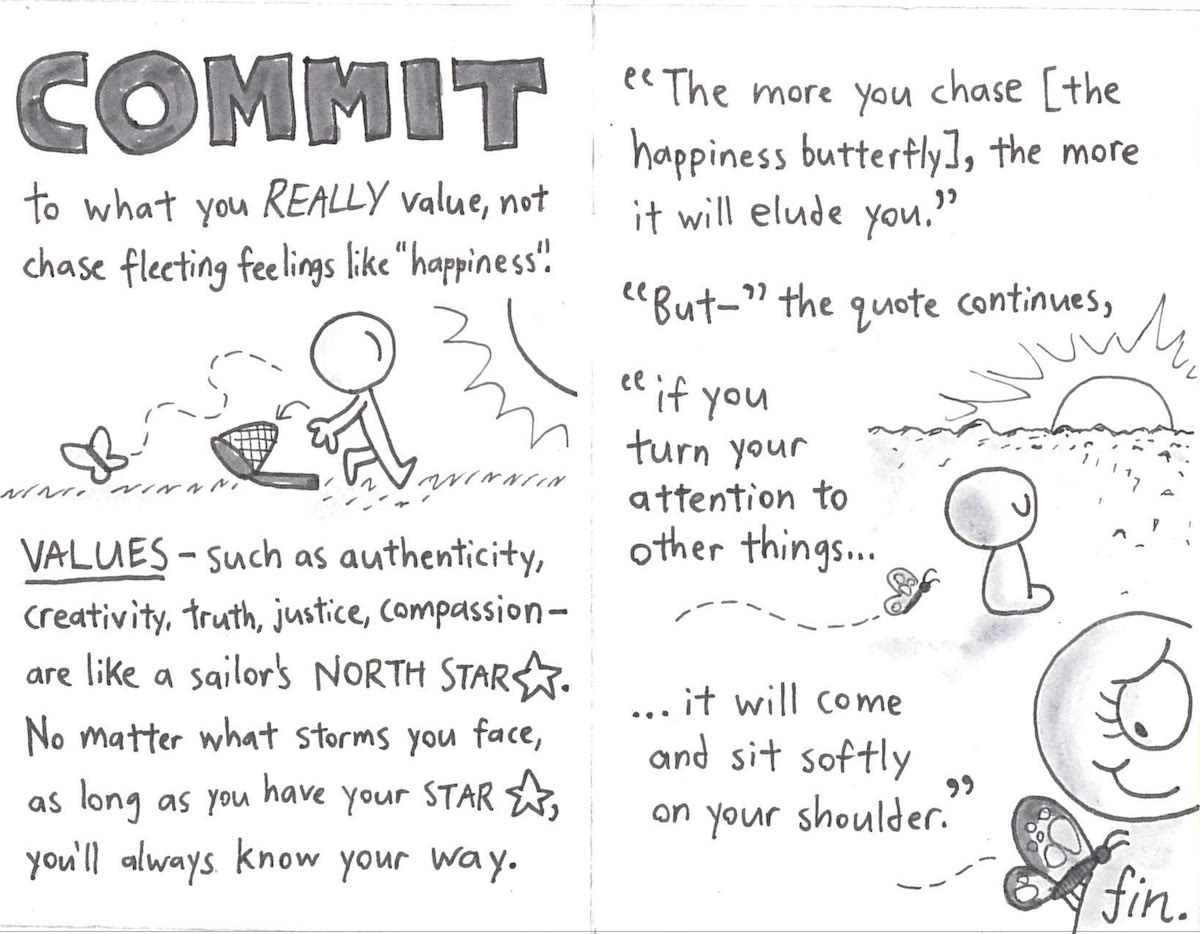 COMMIT
to what you REALLY value, not
chase fleeting feelings like "happiness".
VALUES – such as authenticity,
creativity, truth, justice, compassion –
are like a sailor's NORTH STAR☆.
No matter what storms you face,
as long as you have your STAR ☆,
you'll always know your way.
“The more you chase [the
happiness butterfly], the more
it will elude you.”
“But–” the quote continues,
“if you
turn your
attention to
other things...
...it will come
and sit softly
on your shoulder.”
fin.